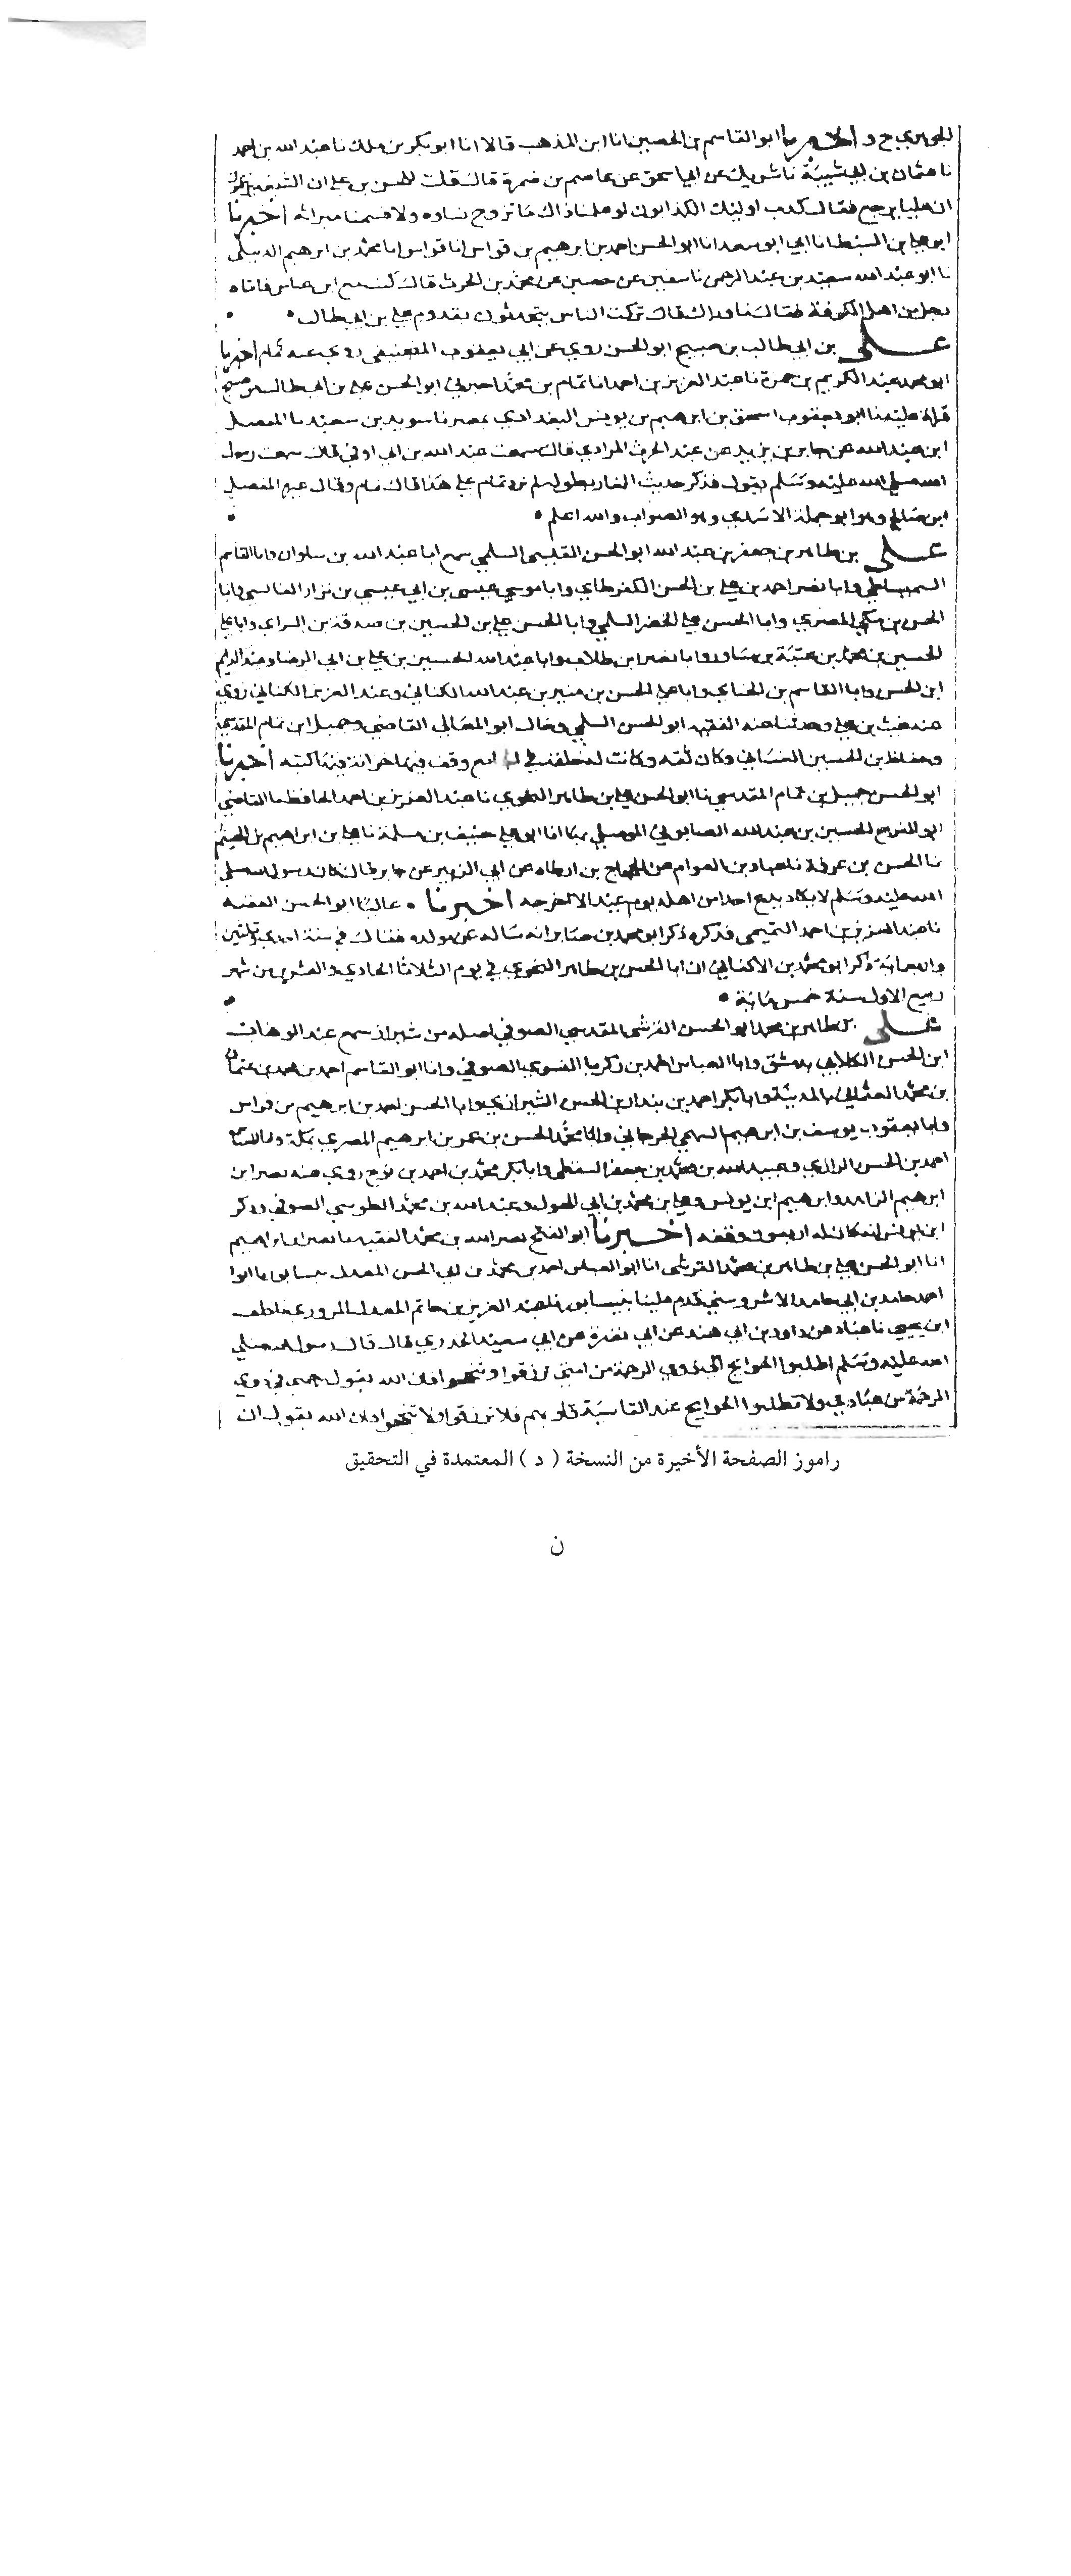 الجوهري ح و اخبرنا ابو القاسم بن الحصين انا ابن المذهب قالا انا ابو بكر بن ملك نا عبد الله بن احمد
نا عثمان بن ابي شيبة نا شريك عن ابي اسحق عن عاصم بن ضمرة قال قلت للحسن بن علي ان الشيعة
ان عليا يرجع فقال كذب اوليك الكذابون لو علمنا ذاك ما تزوج نساوه ولا قسمنا ميراثه اخبرنا
ابو علي بن السبط انا ابي ابو سعد انا ابو الحسن احمد بن ابرهيم بن فراس انا محمد بن ابرهيم الديبلي
نا ابو عبد الله سعيد بن عبد الرحمن نا سفين عن حصين عن محمد بن الحرث قال كنت مع ابن عباس فاتاه
رجل من اهل الكوفة فقال تركت الناس يتحدثون بقدوم علي بن ابي طالب
علي بن ابي طالب بن صبيح ابو الحسن روي عن ابي يعقوب روي عنه تمام اخبرنا
ابو محمد عبد الكريم بن حمزة نا عبد العزيز بن احمد انا تمام بن محمد اخبرني ابو الحسن علي بن ابي طالب بن صبيح
قراة عليه نا ابو يعقوب اسحق بن ابرهيم بن يونس البغدادي بمصر نا سويد بن سعيد نا المفضل
ابن عبد الله عن جابر بن يزيد عن عبد الحرث المرادي قال سمعت عبد الله بن ابي اوفي قال سمعت رسول
الله صلي الله عليه وسلم يقول فذكر حديث الغار بطوله لم يزد تمام علي هذا قال تمام وقال غيره المفضل
ابن صالح وهو ابو جملة الاسدي وهو الصواب والله اعلم
علي بن طاهر بن جعفر بن عبد الله ابو الحسن القيسي السلمي سمع ابا عبد الله بن سلوان وابا القاسم
السميساطي وابا نصر احمد بن علي بن الحسن الكفرطابي وابا موسي عيسي بن ابي عيسي بن نزار القابسي وابا
الحسن بن مكي المصري وابا الحسن علي الخضر السلمي وابا الحسن علي بن الحسين بن صدقة بن الشرابي وابا علي
الحسين بن محمد بن عتبة بن مساور وابا نصر ابن طلاب وابا عبد الله الحسين بن علي بن ابي الرضا وعبد الدايم
ابن الحسن وابا القاسم بن الحنايي وابا علي الحسن بن منير بن عبد الله الكناني وعبد العزيز الكتاني روي
عنه غيث بن علي وحدثنا عنه الفقيه ابو الحسن السلمي وخالي ابو المعالي القاضي وجميل ابن تمام المقدسي
وحفاظ بن الحسين الغساني وكان ثقة وكانت له حلقة في الجامع وقف فيها خزانة فيها كتبه اخبرنا
ابو الحسن جميل بن تمام المقدسي نا ابو الحسن علي بن طاهر النحوي نا عبد العزيز بن احمد الحافظ نا القاضي
ابو الفرج الحسين بن عبد الله الصابوني الموصلي بها انا ابو علي حنيف بن سلمة نا علي بن ابراهيم بن الهيثم
نا الحسن بن عرفة نا عباد بن العوام عن الحجاج بن ارطاه عن ابي الزبير عن جابر قال كان رسول الله صلي
الله عليه وسلم لا يكاد يدع احدا من اهله يوم عيد الا اخرجه اخبرنا عاليا ابو الحسن الفقيه
نا عبد العزيز بن احمد التميمي فذكره ذكر ابو محمد بن صابر انه ساله عن مولده فقال في سنة احدي وثلثين
واربعماية ذكر ابو محمد بن الاكفاني ان ابا الحسن بن طاهر النحوي في يوم الثلاثا الحادي والعشرين من شهر
ربيع الاول سنة خمس ماية
علي بن طاهر بن محمد ابو الحسن القرشي المقدسي الصوفي اصله من شيراز سمع عبد الوهاب
ابن الحسن الكلابي بدمشق وابا العباس احمد بن زكريا النسوي الصوفي وابا القاسم احمد بن محمد بن عثمان
بن محمد العثماني بالمدينة وابا بكر احمد بن بندار بن الحسن الشيرازي وابا الحسن احمد بن ابرهيم بن فراس
وابا يعقوب يوسف بن ابرهيم السهمي الجرجاني وابا محمد الحسن بن عمر بن ابرهيم المصري بمكة وابا العباس
احمد بن الحسن الرازي وعبيد الله بن محمد بن جعفر السقطي وابا بكر محمد بن احمد بن نوح روي عنه نصر ابن
ابرهيم الزاهد وابرهيم ابن يونس وعلي بن محمد بن ابي الهول وعبد الله بن محمد الطوسي الصوفي وذكر
ابن يونس انه كان له اربعون وقفة اخبرنا ابو الفتح نصر الله بن محمد الفقيه نا نصر بن ابراهيم
انا ابو الحسن علي بن طاهر بن محمد القرشي انا ابو العباس احمد بن محمد بن ابي الحسن المعدل بنيسابور نا ابو
احمد حامد بن ابي حامد الاشروسني قدم علينا بنيسابور نا عبد العزيز بن حاتم المعدل المروزي نا خلف
ابن يحيي نا عباد عن داود بن ابي هند عن ابي نضرة عن ابي سعيد الخدري قال قال رسول الله صلي
الله عليه وسلم اطلبوا الحوايج الي ذوي الرحمة من امتي ترزقوا وتنجحوا فان الله يقول رحمتي في ذوي
الرحمة من عبادي ولا تطلبوا الحوايج عند القاسية قلوبهم فلا ترزقوا ولا تنجحوا فان الله يقول ان
راموز الصفحة الأخيرة من النسخة ( د ) المعتمدة في التحقيق
ن